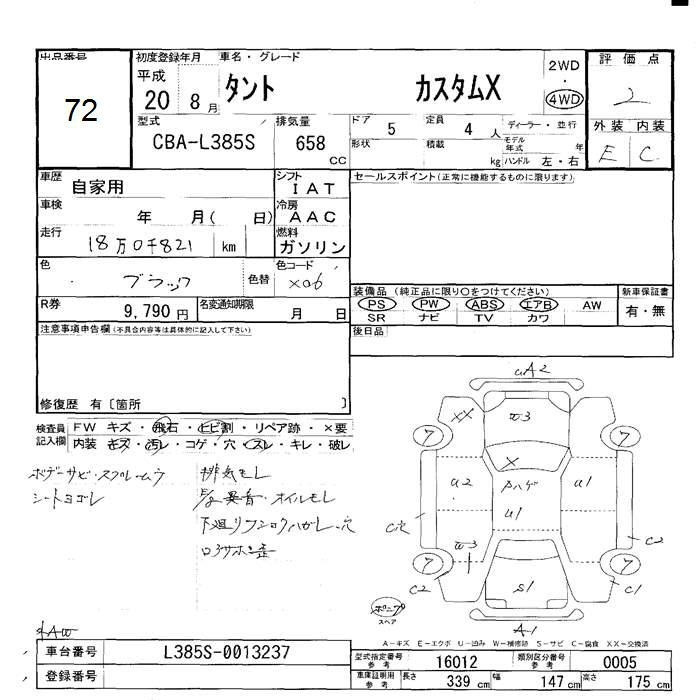 出品番号
72
初度登録年月 車名・グレード
平成 20 8月 タント カスタムX
2WD
・
4WD
評価点
2
型式 排気量 ドア 5 定員 4人 ディーラー・並行
CBA-L385S 658 cc 形状 積載 kg モデル年式 年 ハンドル 左・右
外装 内装
E C
車歴 自家用 シフト IAT
車検 年 月( 日) 冷房 AAC
走行 18万0千821 km 燃料 ガソリン
色 ブラック 色替 色コード X06
R券 9,790円 名変通知期限 月 日
セールスポイント(正常に機能するものに限ります)
装備品(純正品に限り○をつけてください) 新車保証書
PS PW ABS エアB AW 有・無
SR ナビ TV カワ
後日品
注意事項申告欄(不具合内容等は具体的に記入して下さい)
修復歴 有〔箇所 〕
検査員記入欄 FW キズ・飛石・ヒビ割・リペア跡・×要
内装 キズ・汚レ・コゲ・穴・スレ・キレ・破レ
ボデーサビ・スクリームウ
シートヨゴレ
排気モレ
異音・オイルモレ
下廻リ
穴
歪
A2
XX
W3
7 7
X
U2 ハゲ U1
U1
C穴
W3
C2
7 7
C2 S1 C1
A-1
スペア
A-キズ E-エクボ U-凹み W-補修跡 S-サビ C-腐食 XX-交換済
AW
車台番号 L385S-0013237
登録番号
型式指定番号 参考 16012 類別区分番号 参考 0005
車庫証明用 参考 長さ 339 cm 幅 147 cm 高さ 175 cm